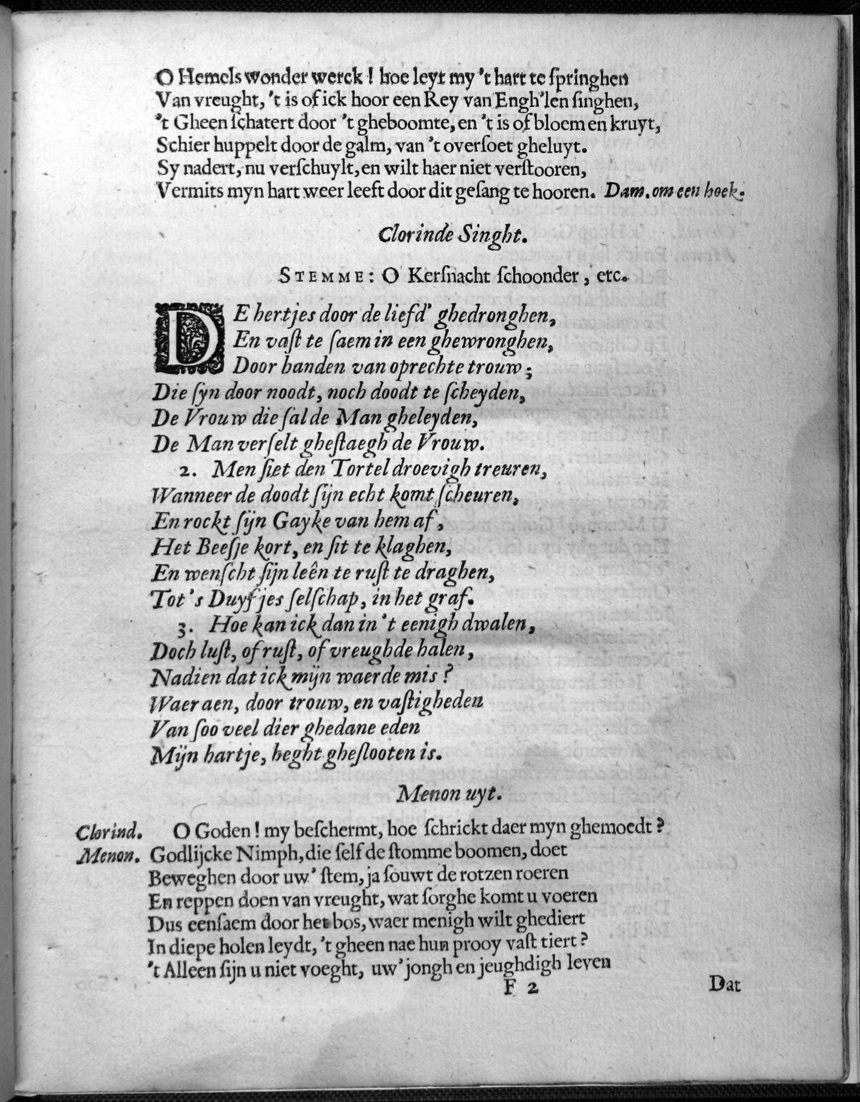 O Hemels wonder werck ! hoe leyt my 't hart te springhen
Van vreught, 't is of ick hoor een Rey van Engh'len singhen,
't Gheen schatert door 't gheboomte, en 't is of bloem en kruyt,
Schier huppelt door de galm, van 't oversoet gheluyt.
Sy nadert, nu verschuylt, en wilt haer niet verstooren,
Vermits myn hart weer leeft door dit gesang te hooren. Dam. om een hoek.
Clorinde Singht.
STEMME: O Kersnacht schoonder, etc.
DE hertjes door de liefd' ghedronghen,
En vast te saem in een ghewronghen,
Door banden van oprechte trouw;
Die syn door noodt, noch doodt te scheyden,
De Vrouw die sal de Man gheleyden,
De Man verselt ghestaegh de Vrouw.
2. Men siet den Tortel droevigh treuren,
Wanneer de doodt sijn echt komt scheuren,
En rockt sijn Gayke van hem af,
Het Beesje kort, en sit te klaghen,
En wenscht sijn leên te rust te draghen,
Tot 's Duyfjes selschap, in het graf.
3. Hoe kan ick dan in 't eenigh dwalen,
Doch lust, of rust, of vreughde halen,
Nadien dat ick mijn waerde mis ?
Waer aen, door trouw, en vastigheden
Van soo veel dier ghedane eden
Mijn hartje, heght gheslooten is.
Menon uyt.
Clorind. O Goden ! my beschermt, hoe schrickt daer myn ghemoedt ?
Menon. Godlijcke Nimph, die self de stomme boomen, doet
Beweghen door uw' stem, ja souwt de rotzen roeren
En reppen doen van vreught, wat sorghe komt u voeren
Dus eensaem door het bos, waer menigh wilt ghediert
In diepe holen leydt, 't gheen nae hun prooy vast tiert ?
't Alleen sijn u niet voeght, uw' jongh en jeughdigh leven
F 2 Dat